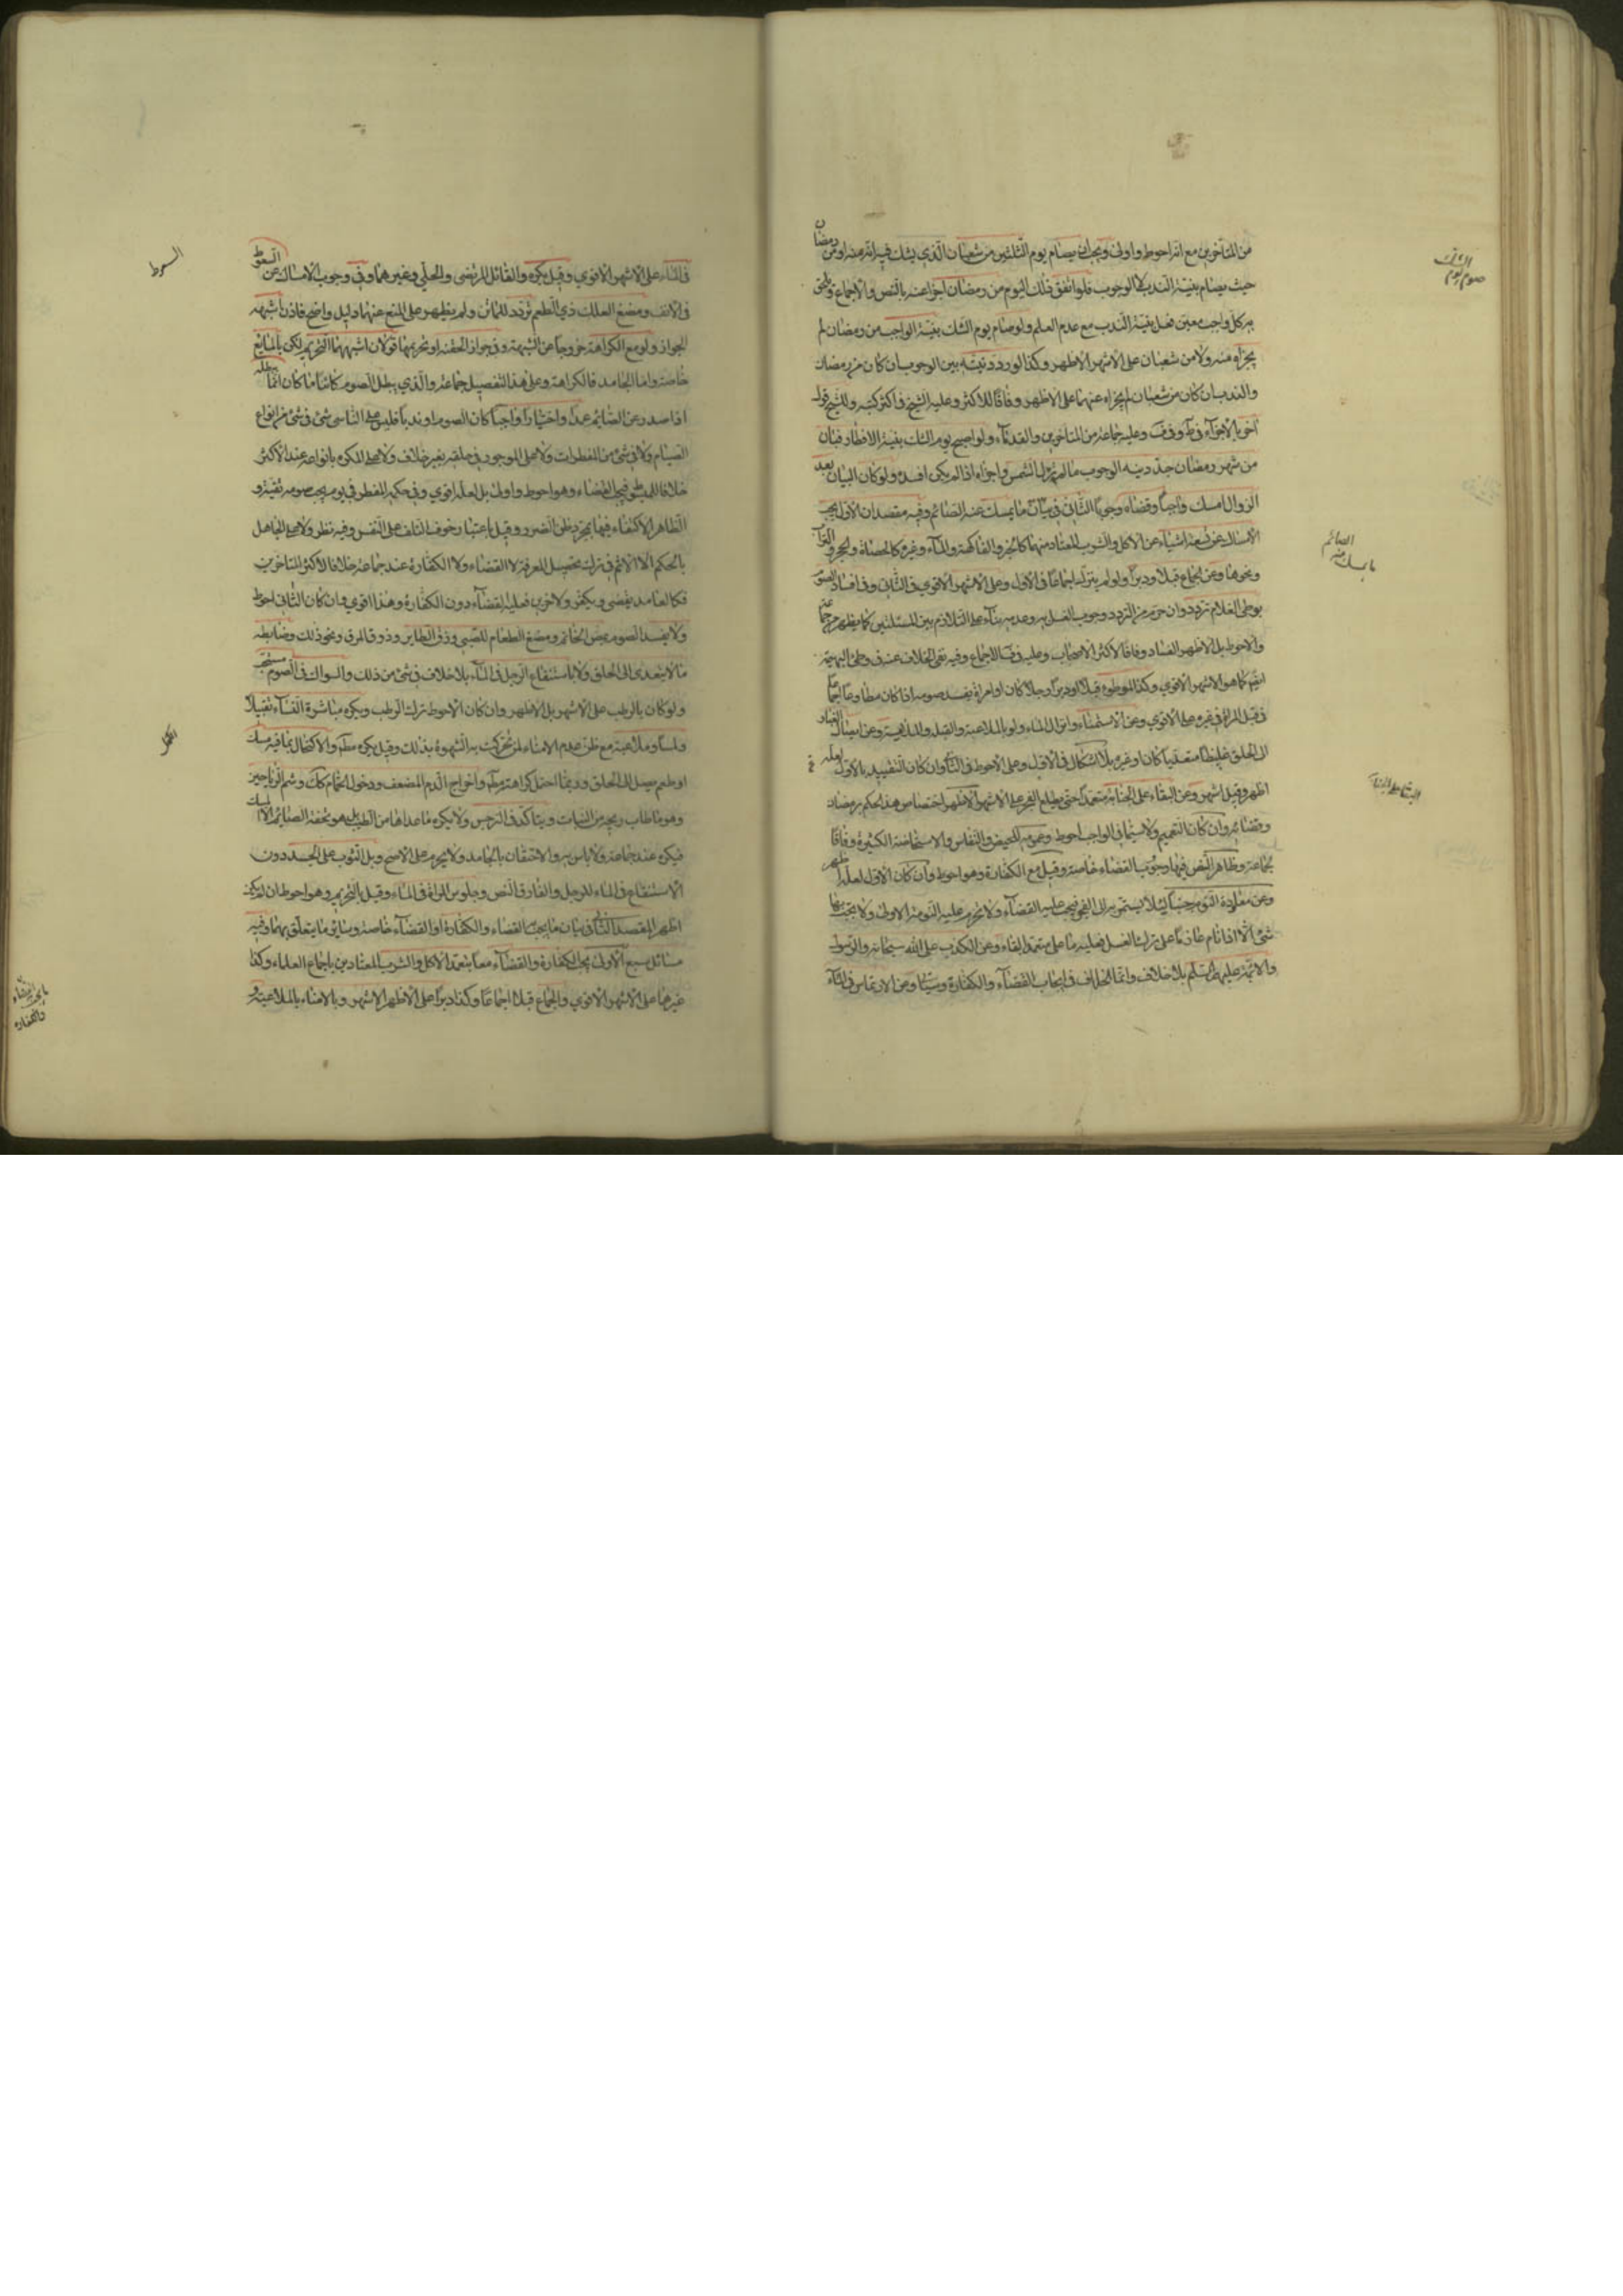 من المتأخرين مع انه احوط واولى ويجب ان يصام يوم الثلثين من شعبان الذي يشك فيه انه منه او من رمضان
حيث يصام بنية الندب لا الوجوب فلو اتفق ذلك اليوم من رمضان اجزا عنه بالنص والاجماع ويلحق
به كل واجب معين فعل بنية الندب مع عدم العلم ولو صام يوم الشك بنية الواجب من رمضان لم
يجزاه منه ولا من شعبان على الاشهر الاظهر وكذا لو ردد نيته بين الوجوب ان كان من رمضان
والندب ان كان من شعبان لم يجزاه عنهما على الاظهر وفاقا للاكثر وعليه الشيخ في اكثر كتبه وللشيخ قول
آخر بالاجزاء في ط وف وعليه جماعة من المتاخرين والقدماء ولو اصبح يوم الشك بنية الافطار فبان
من شهر رمضان جدد نية الوجوب ما لم تزل الشمس واجزاه اذا لم يكن افسده ولو كان البيان بعد
الزوال امسك واجبا وقضاه وجوبا الثاني في بيان ما يمسك عنه الصائم وفيه مقصدان الاول يجب
الامساك عن تسعة اشياء عن الاكل والشرب المعتاد منهما كالخبز والفاكهة والماء وغيره كالحصاة والحجر والتراب
ونحوها وعن الجماع قبلا ودبرا ولو لم ينزل اجماعا في الاول وعلى الاشهر الاقوى في الثاني وفي افساد الصوم
بوطى الغلام تردد وان حرم من التردد وجوب الغسل به وعدمه بناء على التلازم بين المسئلتين كما يظهر من
والاحوط بل الاظهر الفساد وفاقا لاكثر الاصحاب وعليه في ف الاجماع وفيه نفي الخلاف عنه في وطى البهيمة
ايضا كما هو الاشهر الاقوى وكذا الموطوء قبلا او دبرا رجلا كان او امراة يفسد صومه اذا كان مطاوعا اجماعا
في قبل المراة وفي غيره على الاقوى وعن الاستمناء وانزال الماء ولو بالملاعبة والقبلة والملامسة وعن ايصال الغبار
الى الحلق غليظا متعديا كان او غيره بلا اشكال في الاول وعلى الاحوط في الثاني وان كان التقييد بالاول لعله
اظهر وقيل اشهر وعن البقاء على الجنابة متعمدا حتى يطلع الفجر على الاشهر الاظهر اختصاص هذا الحكم برمضان
وقضائه وان كان التعميم ولا سيما في الواجب احوط وعمومه للحيض والنفاس والاستحاضة الكثيرة وفاقا
لجماعة وظاهر النص فيها وجوب القضاء خاصة وقيل مع الكفارة وهو احوط وان كان الاول لعله اظهر
وعن معاودة النوم جنبا ليلا ليستمر به الى الفجر فيجب عليه القضاء ولا تحرم عليه النومة الاولى ولا يجب بها
شئ الا اذا نام عازما على ترك الغسل فعليه ما على متعمد البقاء وعن الكذب على الله سبحانه والرسول
والائمة عليهم السلم بلا خلاف وانما الخلاف في ايجاب القضاء والكفارة وسيتا وعن الارتماس في الماء
صوم يوم الشك
ما يمسك عنه الصائم
البقاء على الجنابة
في الماء على الاشهر الاقوى وقيل يكره والقائل المرتضى والحلي وغيرهما وفي وجوب الامساك عن السعوط
في الانف ومضغ العلك ذي الطعم تردد للماتن ولم يظهر على المنع عنهما دليل واضح فاذن اشبهه
الجواز ولو مع الكراهة خروجا عن الشبهة وفي جواز الحقنة او تحريمها قولان اشبههما التحريم لكن بالمايع
خاصة واما الجامد فالكراهة وعلى هذا التفصيل جماعة والذي يبطل الصوم كائنا ما كان انما يبطله
اذا صدر عن الصائم عمدا واختيارا واجبا كان الصوم او ندبا فليس على الناسي شئ في شئ من انواع
الصيام ولا في شئ من المفطرات ولا على الموجور في حلقه بغير خلاف ولا على المكره بانواعه عند الاكثر
خلافا للمبسوط فيجب القضاء وهو احوط واولى بل لعله اقوى وفي حكمه المفطر في يوم يجب صومه تقية و
الظاهر الاكتفاء فيها بمجرد ظن الضرر وقيل باعتبار خوف التلف على النفس وفيه نظر ولا على الجاهل
بالحكم الا الاثم في ترك تحصيل المعرفة لا القضاء ولا الكفارة عند جماعة خلافا لاكثر المتاخرين
فكالعامد يقضي ويكفر ولاخرين فعليه القضاء دون الكفارة وهذا اقوى وان كان الثاني احوط
ولا يفسد الصوم بمص الخاتم ومضغ الطعام للصبي وزق الطاير وذوق المرق ونحو ذلك وضابطه
ما لا يتعدى الى الحلق ولا باستنقاع الرجل في الماء بلا خلاف في شئ من ذلك والسواك في الصوم مستحب
ولو كان بالرطب على الاشهر بل الاظهر وان كان الاحوط ترك الرطب ويكره مباشرة النساء تقبيلا
ولمسا وملاعبة مع ظن عدم الامناء لمن تحركت به الشهوة بذلك وقيل يكره مطم والاكتحال بما فيه مسك
او طعم يصل الى الحلق وربما احتمل كراهته مطم واخراج الدم المضعف ودخول الحمام كك وشم الرياحين
وهو ما طاب ريحه من النبات ويتاكد في النرجس ولا يكره ما عداها من الطيب بل هو تحفة الصائم الا المسك
فيكره عند جماعة ولا باس به والاحتقان بالجامد ولا يحرم على الاصح وبل الثوب على الجسد دون
الاستنقاع في الماء للرجل والفارق النص وجلوس المراة في الماء وقيل بالتحريم وهو احوط ان لم يكن
اظهر المقصد الثاني في بيان ما يجب القضاء والكفارة او القضاء خاصة وساير ما يتعلق بهما وفيه
مسائل سبع الاولى يجب الكفارة والقضاء معا بتعمد الاكل والشرب المعتادين باجماع العلماء وكذا
غيرها على الاشهر الاقوى والجماع قبلا اجماعا وكذا دبرا على الاظهر الاشهر وبالامناء بالملاعبة و
السعوط
ما يجب القضاء
والكفارة